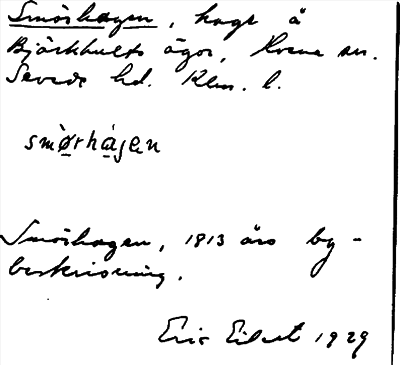 Smörhagen, hage å
Björkhults ägor, Hvena sn.
Sevede hd. Klm. l.
smø̀rhágen
Smörhagen, 1813 års by-
beskrivning.
Eric Edert 1929